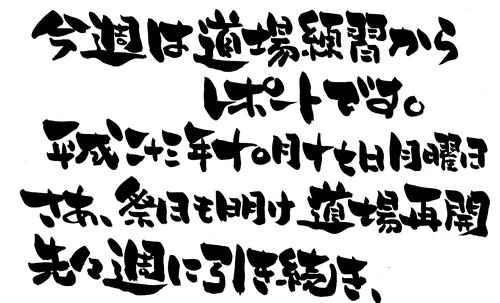 今週は道場練習から
レポートです。
平成二十三年十○月十七日月曜日
さあ、祭日も明け道場再開
先々週に引き続き、